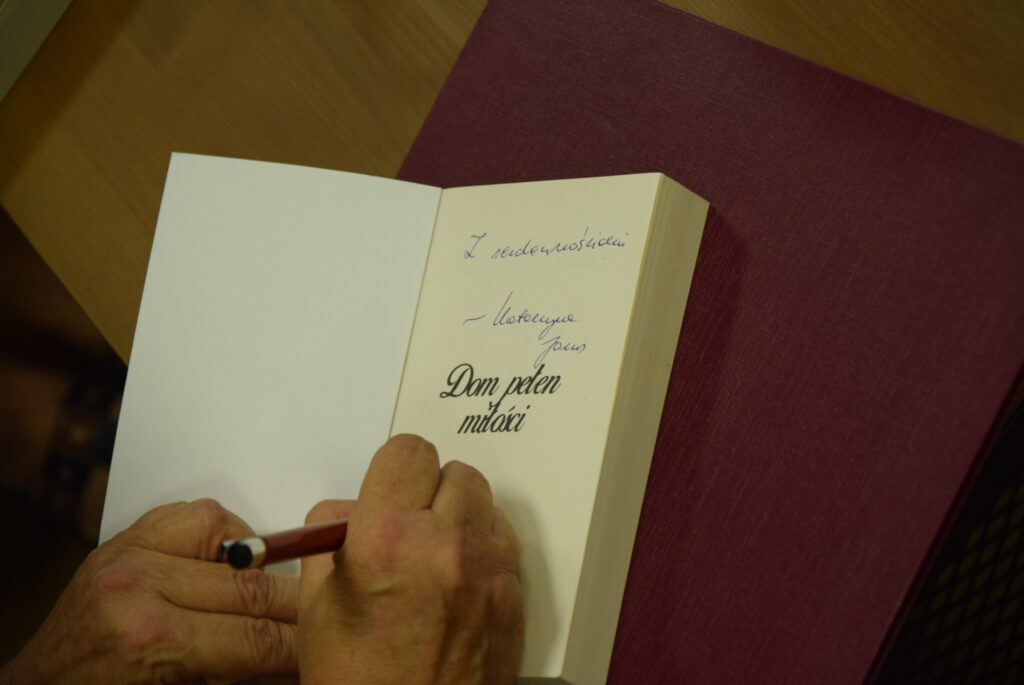 Z serdecznościami
– Katarzyna
Janus
Dom pełen
miłości